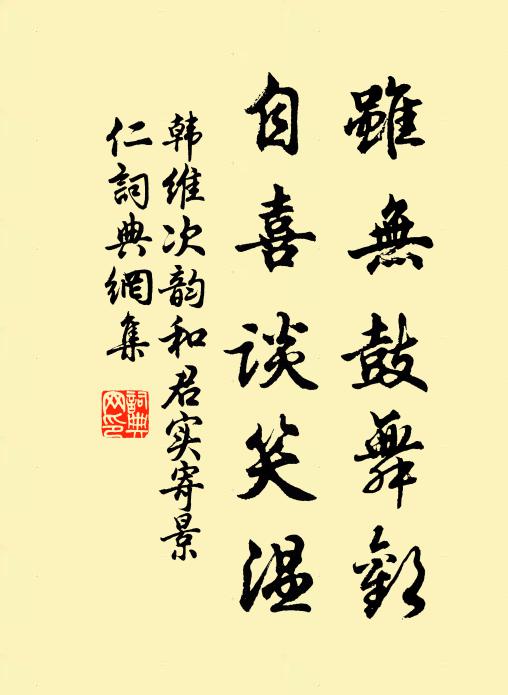 雖無鼓舞歡
自喜談笑温
韩維次韵和君实寄景
仁詞典網集
詞典
网印